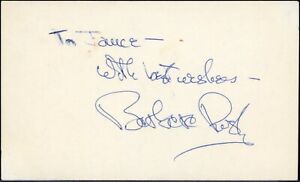 To Janice —
with best wishes —
Barbara Rush